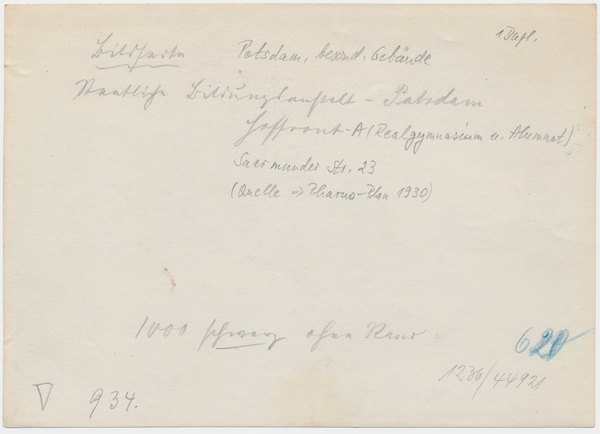 1 Dupl.
Bildseite Potsdam, besond. Gebäude
Staatliche Bildungsanstalt - Potsdam
Hoffront-A (Realgymnasium u. Alumnat)
Saarmunder Str. 23
(Quelle => Pharus-Plan 1930)
1000 schwarz ohne Rand
620
1236/44921
934.